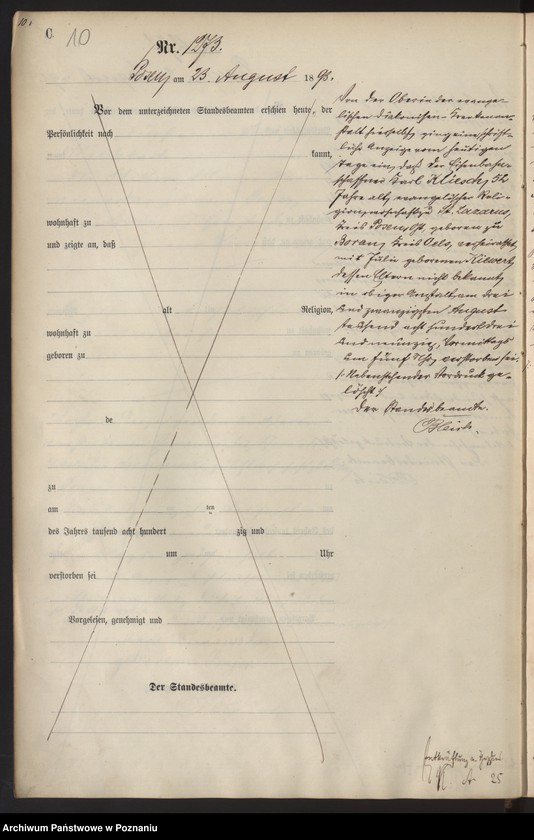 10.
C.
10
Nr. 1273.
Posen am 23. August 1893.
Vor dem unterzeichneten Standesbeamten erschien heute, der
Persönlichkeit nach
kannt,
wohnhaft zu
und zeigte an, daß
alt Religion,
wohnhaft zu
geboren zu
de
zu
am ten
des Jahres tausend acht hundert zig und
um Uhr
verstorben sei
Vorgelesen, genehmigt und
Der Standesbeamte.
Von der Oberin der evange-
lischen Diakonissen-Krankenan-
stalt hierselbst ging eine schrift-
liche Anzeige vom heutigen
Tage ein, daß der Eisenbahn-
schaffner Karl Kliesch, 52
Jahre alt, evangelischer Reli-
gion, wohnhaft zu St. Lazarus,
Kreis Posen Ost, geboren zu
Kreis Oels, verheirathet
mit Julie geborenen Kiewert,
dessen Eltern nicht bekannt,
in obiger Anstalt am drei
und zwanzigsten August
tausend acht hundert drei
und neunzig, Vormittags
um fünf Uhr, verstorben sei.
/: Nebenstehender Vordruck ge-
löscht :/
Der Standesbeamte.
25
Archiwum Państwowe w Poznaniu